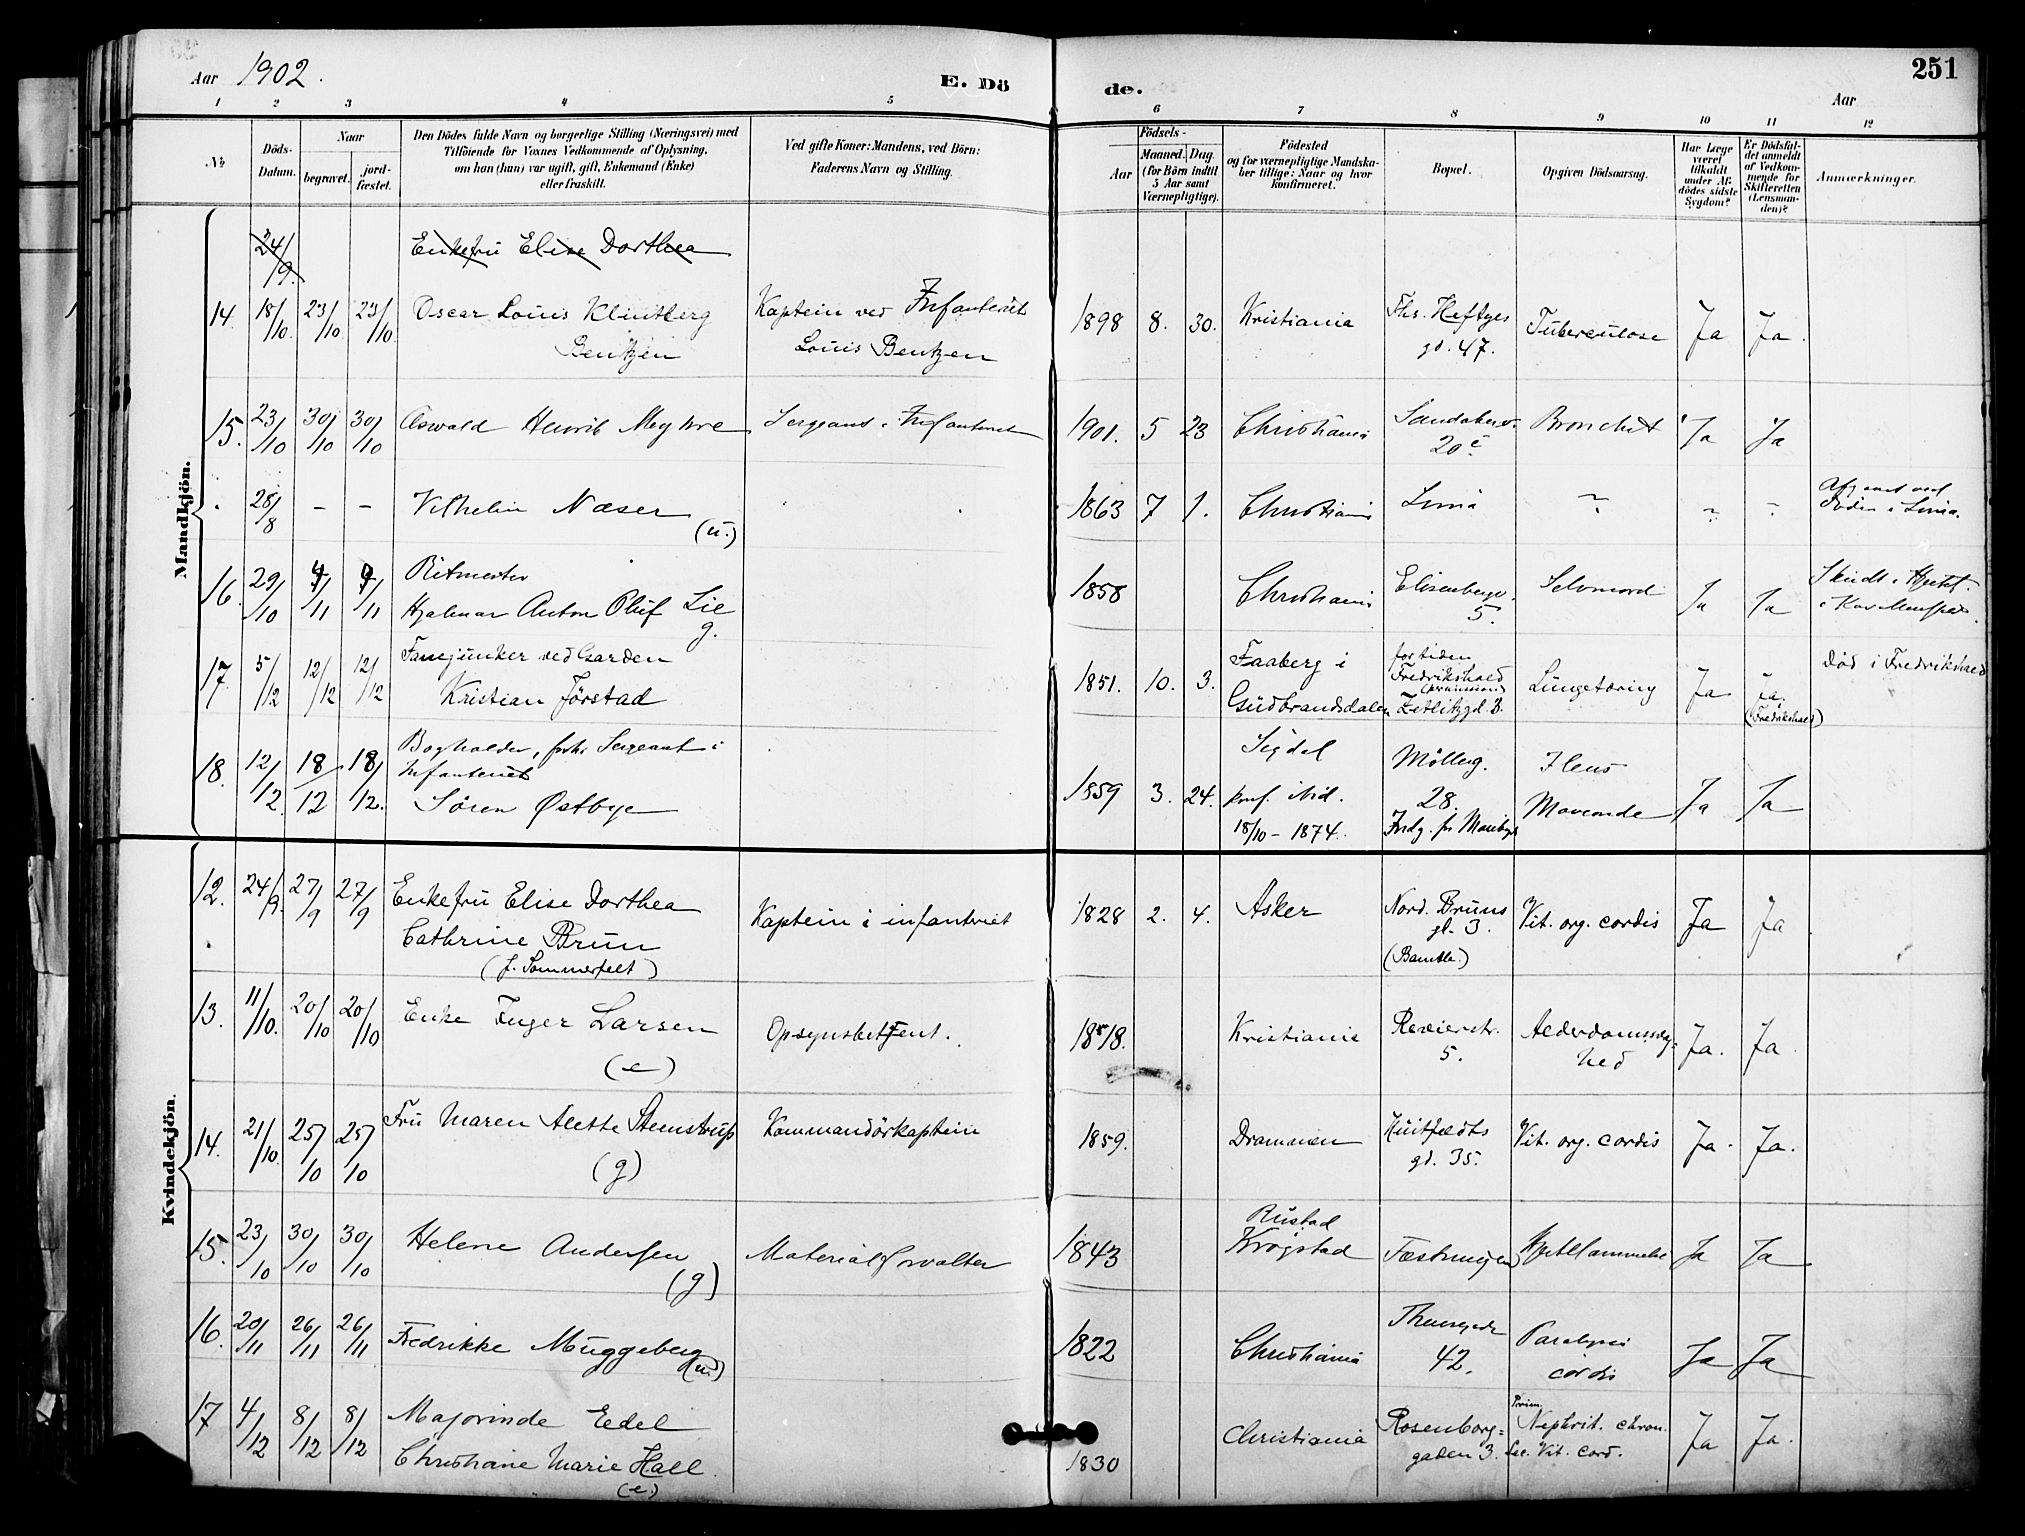 Aar 1902.
E. Dö
de.
251
Aar
1 2 3 4 5 6 7 8 9 10 11 12
No
Döds-
Datum.
Naar
begravet.
jord-
fæstet.
Den Dödes fulde Navn og borgerlige Stilling (Næringsvei) med
Tilföiende for Voxnes Vedkommende af Oplysning,
om han (hun) var ugift, gift, Enkemand (Enke)
eller fraskilt.
Ved gifte Koner: Mandens, ved Börn:
Faderens Navn og Stilling.
Födsels-
Aar
Maaned.
Dag.
(for Börn indtil
5 Aar samt
Værnepligtige).
Födested
og for værnepligtige Mandska-
ber tillige: Naar og hvor
konfirmeret.
Bopæl.
Opgiven Dödsaarsag.
Har Læge
været
tilkaldt
under Af-
dödes sidste
Sygdom?
Er Dödsfal-
det anmeldt
af Vedkom-
mende for
Skifteretten
(Lensman-
den)?
Anmærkninger.
Mandkjön.
24/9. Enkefru Elise Dorthea
14. 18/10 23/10 23/10 Oscar Louis Klintberg Kaptein ved Infanteriet 1898 8. 30. Kristiania Ths. Heftyes Tuberculose Ja Ja.
Bentzen Louis Bentzen gd. 47.
15. 23/10 30/10 30/10 Oswald Henrik Myhre Sergeant i Infanteriet 1901. 5 23 Christiania Bronchit Ja Ja
20c
28/8 - - Vilhelm Næser 1863 7 1. Christiania
(u.)
16. 29/10 Ritmester 1858 Christiania Selvmord Ja Ja
Hjalmar Anton Oluf Lie 5.
g.
17. 5/12 12/12 12/12 Fanejunker ved Garden 1851. 10. 3. Faaberg i for tiden Lungetæring Ja Ja. Död i Fredrikshald
Kristian Förstad Gudbrandsdalen Fredrikshald (Fredrikshald)
Zetlitzgd. 3.
18. 12/12. 18/12 18/12. Bogholder, forh. Sergeant i 1859 3. 24. Sigdal Mölleg. Ja Ja
Infanteriet 28.
Sören Østbye 18/10 - 1874.
Kvindekjön.
12. 24/9. 27/9 27/9 Enkefru Elise Dorthea Kaptein i infanteriet 1828 2. 4. Asker Nord. Bruns Vit. org. cordis Ja Ja
Cathrine Brun gd. 3.
(f. Sommerfelt) (Bamble.)
13. 11/10. 20/10 20/10 Enke Inger Larsen Opsynsbetjent. 1818. Kristiania Revierstr. Alderdomssvag= Ja. Ja.
(e) 5. hed
14. 21/10. 25/10 25/10 Fru Maren Alette Steenstrup Kommandörkaptein 1859. Drammen Huitfeldts Vit. org. cordis Ja. Ja.
(g) gd. 35.
15. 23/10 30/10 30/10 Helene Andersen Materialforvalter 1843 Rustad Fæstningen Hjertelammelse Ja Ja
(g) Krogstad
16. 20/11 26/11 26/11 Fredrikke Muggeberg 1822 Christiania Paralysis Ja Ja
(u.) 42. cordis
17 4/12 8/12 8/12 Majorinde Edel 1830 Christiania Rosenborg= Prim. Nephrit. chron. Ja Ja.
Christiane Marie Hall. gaden 3. Sec. Vit. cord.
(e.)